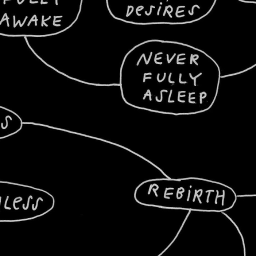 FULLY
AWAKE
DESIRES
NEVER
FULLY
ASLEEP
REBIRTH